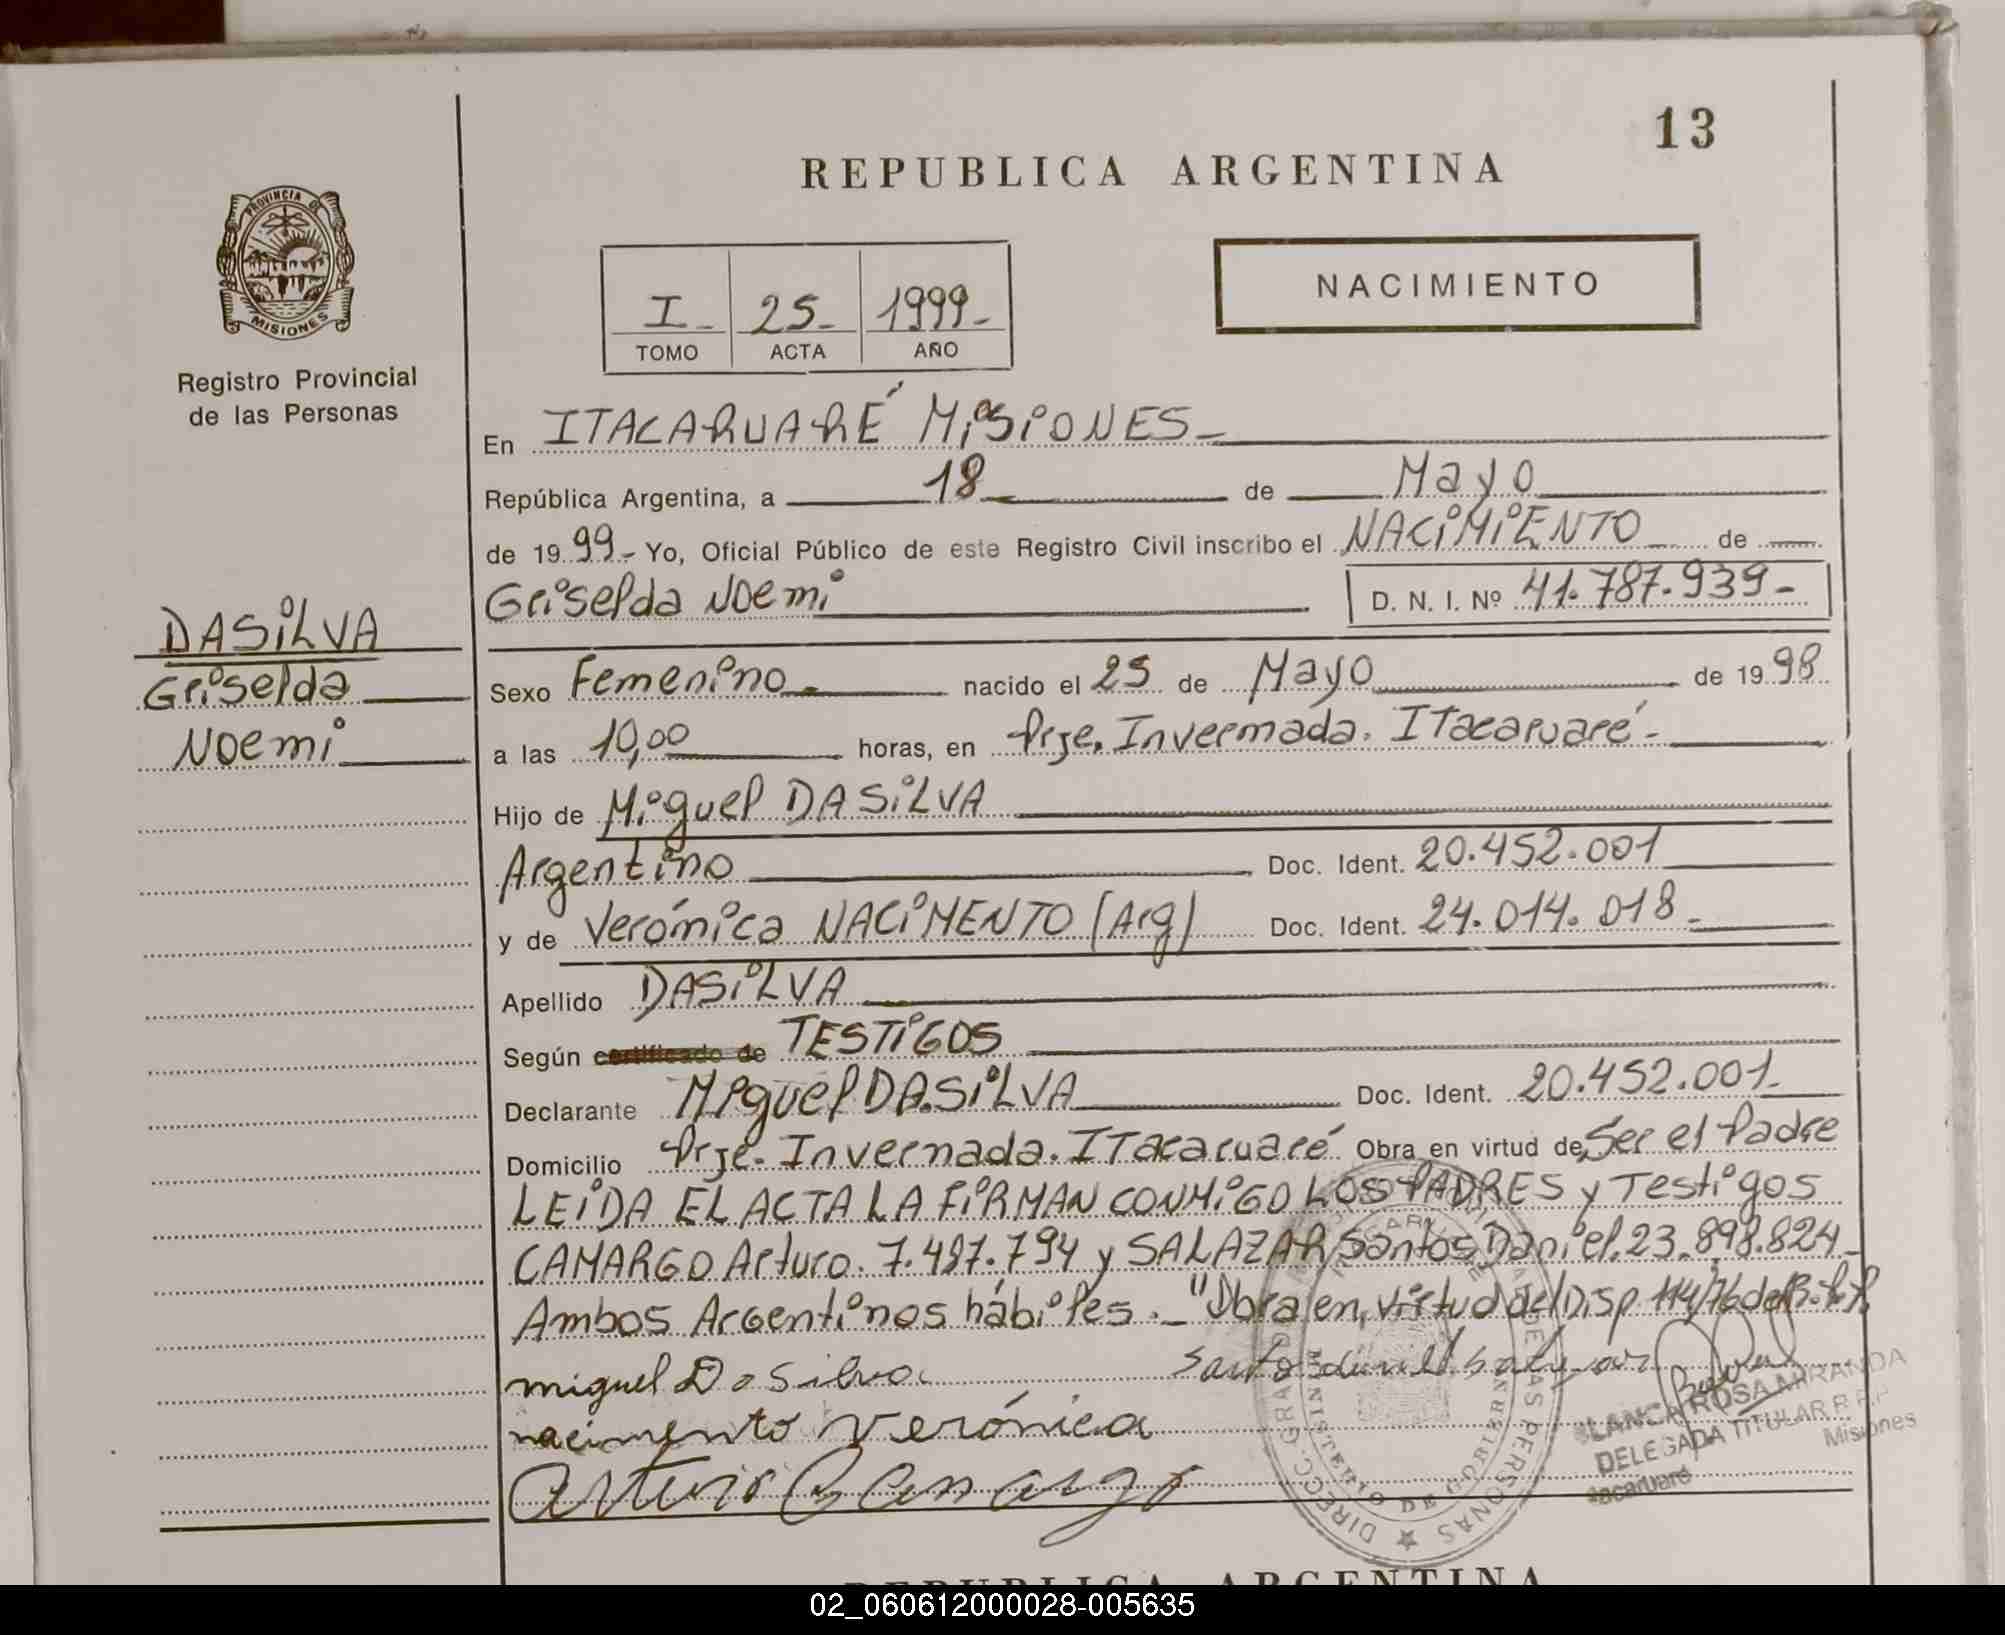 13
REPUBLICA ARGENTINA
PROVINCIA DE
MISIONES
Registro Provincial
de las Personas
I - 25 - 1999 -
TOMO ACTA AÑO
NACIMIENTO
En ITACARUARÉ MISIONES -
República Argentina, a 18 de Mayo
de 1999 - Yo, Oficial Público de este Registro Civil inscribo el NACIMIENTO de
Griselda Noemi D. N. I. Nº 41.787.939 -
DASILVA
Griselda
Noemi
Sexo Femenino nacido el 25 de Mayo de 1998
a las 10,00 horas, en Prje. Invernada. Itacaruaré -
Hijo de Miguel DASILVA
Argentino Doc. Ident. 20.452.001
y de Verónica NACIMENTO (Arg) Doc. Ident. 24.014.018 -
Apellido DASILVA
Según certificado de TESTIGOS
Declarante Miguel DASILVA Doc. Ident. 20.452.001 -
Domicilio Prje. Invernada. ITacaruaré Obra en virtud de Ser el Padre
LEIDA EL ACTA LA FIRMAN CONMIGO LOS PADRES y Testigos
CAMARGO Arturo. 7.487.794 y SALAZAR Santos Daniel. 23.898.824 -
Ambos Argentinos hábiles. - "Obra en virtud del Disp. 114/76 del R.P.P.
miguel Da Silva
nacimento verónica
Arturo Camargo
BLANCA ROSA MIRANDA
DELEGADA TITULAR R.P.P.
Misiones
Itacaruaré
MINISTERIO DE GOBIERNO
REPUBLICA ARGENTINA
02_060612000028-005635